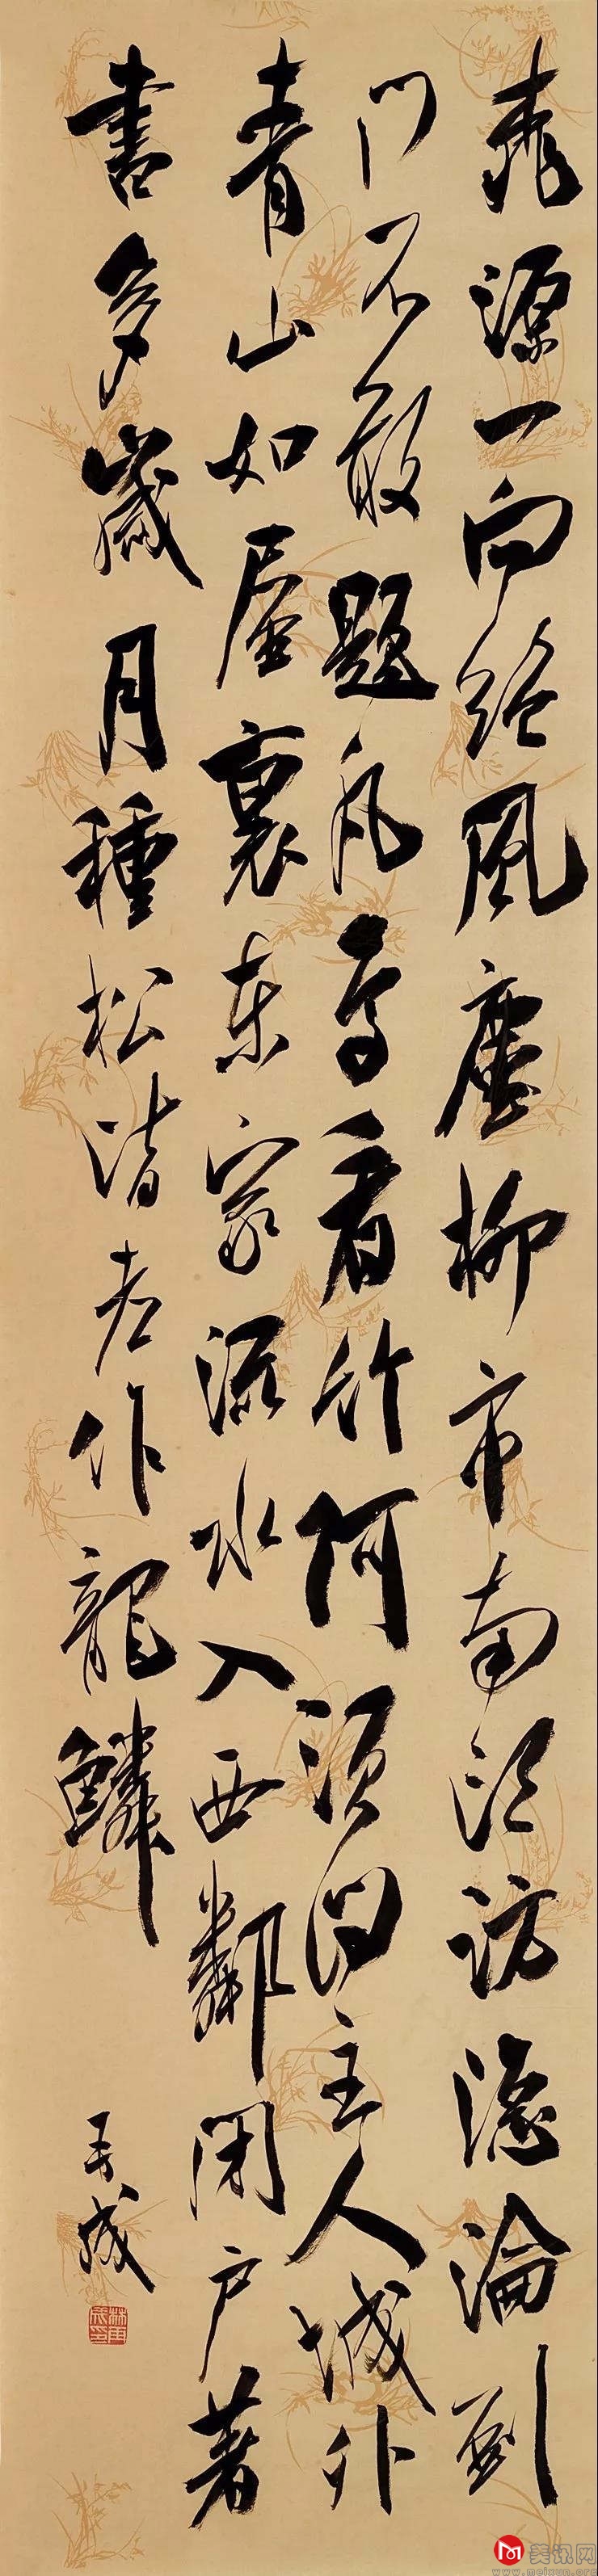 桃源一向絕風塵柳市南頭訪隱淪到
門不敢題凡鳥看竹何須問主人城外
青山如屋裏東家流水入西鄰閉户著
書多歲月種松皆老作龍鱗
美讯网